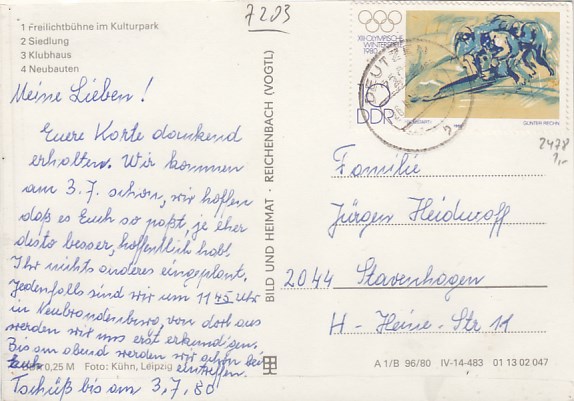 1 Freilichtbühne im Kulturpark
2 Siedlung
3 Klubhaus
4 Neubauten
7203
Meine Lieben!
Euere Karte dankend
erhalten. Wir kommen
am 3.7. schon, wir hoffen
daß es Euch so paßt, je eher
desto besser, hoffentlich habt
Ihr nichts anderes eingeplant.
Jedenfalls sind wir um 11 45 Uhr
in Neubrandenburg, von dort aus
werden wir uns erst erkundigen.
Bis am abend werden wir schon bei
Euch eintreffen.
0,25 M Foto: Kühn, Leipzig
Tschüß bis am 3.7.80
BILD UND HEIMAT · REICHENBACH (VOGTL)
XIII. OLYMPISCHE
WINTERSPIELE
1980
DDR
GÜNTER RECHN
2478
1,-
Familie
Jürgen Heidwolf
2044 Stavenhagen
H-Heine-Str 11
A 1/B 96/80 IV-14-483 01 13 02 047